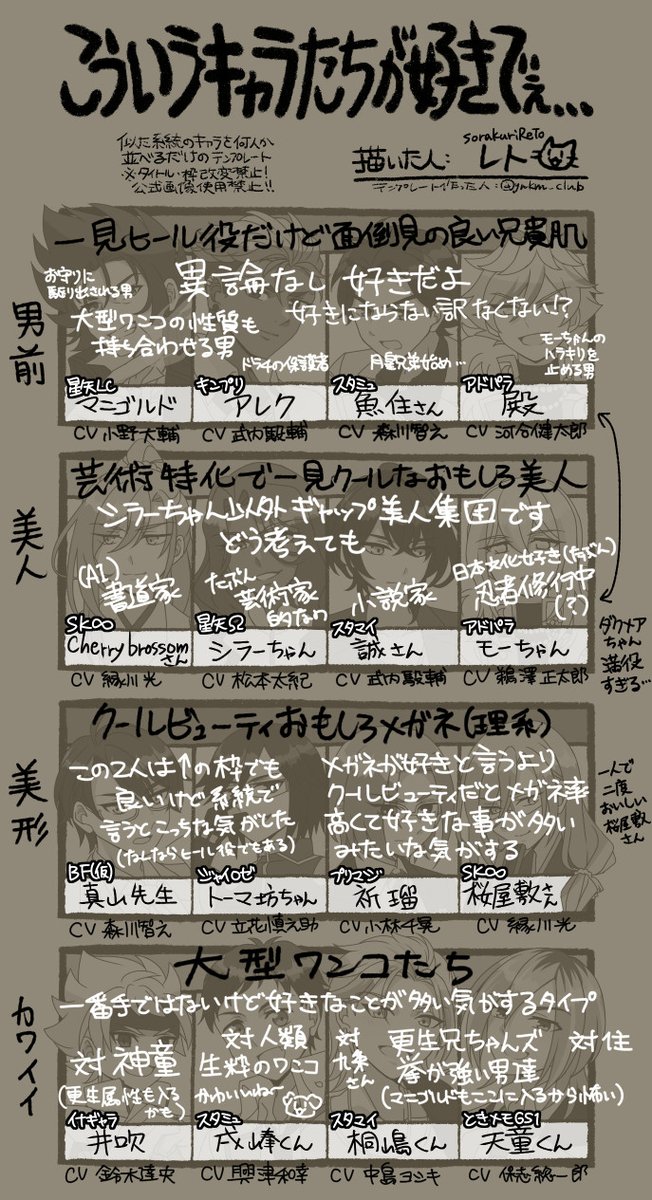 こういうキャラたちが好きでぇ...
似た系統のキャラを何人か
並べるだけのテンプレート
※タイトル・枠改変禁止!
公式画像使用禁止!!
sorakuriReto
描いた人: レト
テンプレート作った人:@ynkm_club
男前
一見ヒール役だけど面倒見の良い兄貴肌
お守りに
駆り出される男
異論なし 好きだよ
好きにならない訳なくない!?
大型ワンコの性質も
持ち合わせる男
ドラチの保護者
月皇兄弟始め…
モーちゃんの
ハラキリを
止める男
星矢LC
マニゴルド
CV 小野大輔
キンプリ
アレク
CV 武内駿輔
スタミュ
魚住さん
CV 森川智之
アドパラ
殿
CV 河合健太郎
美人
芸術特化で一見クールなおもしろ美人
シラーちゃん以外ギャップ美人集団です
どう考えても
(AI)
書道家
たぶん
芸術家
的なの
小説家
日本文化好き(たぶん)
忍者修行中
(?)
SK∞
Cherry brossom
さん
CV 緑川光
星矢Ω
シラーちゃん
CV 松本太紀
スタマイ
誠さん
CV 武内駿輔
アドパラ
モーちゃん
CV 鵜澤正太郎
ダクメア
ちゃん
満役
すぎる…
美形
クールビューティおもしろメガネ(理系)
この2人は↑の枠でも
良いけど系統で
言うとこっちな気がした
(なんならヒール役でもある)
メガネが好きと言うより
クールビューティだとメガネ率
高くて好きな事が多い
みたいな気がする
一人で
二度
おいしい
桜屋敷
さん
BF(仮)
真山先生
CV 森川智之
ジャイロゼ
トーマ坊ちゃん
CV 立花慎之助
プリマジ
祈瑠
CV 小林千晃
SK∞
桜屋敷さん
CV 緑川光
カワイイ
大型ワンコたち
一番手ではないけど好きなことが多い気がするタイプ
対神童
(更生属性も入る
かも)
対人類
生粋のワンコ
かわいいねー
対
九条
さん
更生兄ちゃんズ
拳が強い男達
(マニゴルドもここに入るから怖い)
対住
イナギャラ
井吹
CV 鈴木達央
スタミュ
戌峰くん
CV 興津和幸
スタマイ
桐嶋くん
CV 中島ヨシキ
ときメモGS1
天童くん
CV 保志総一朗